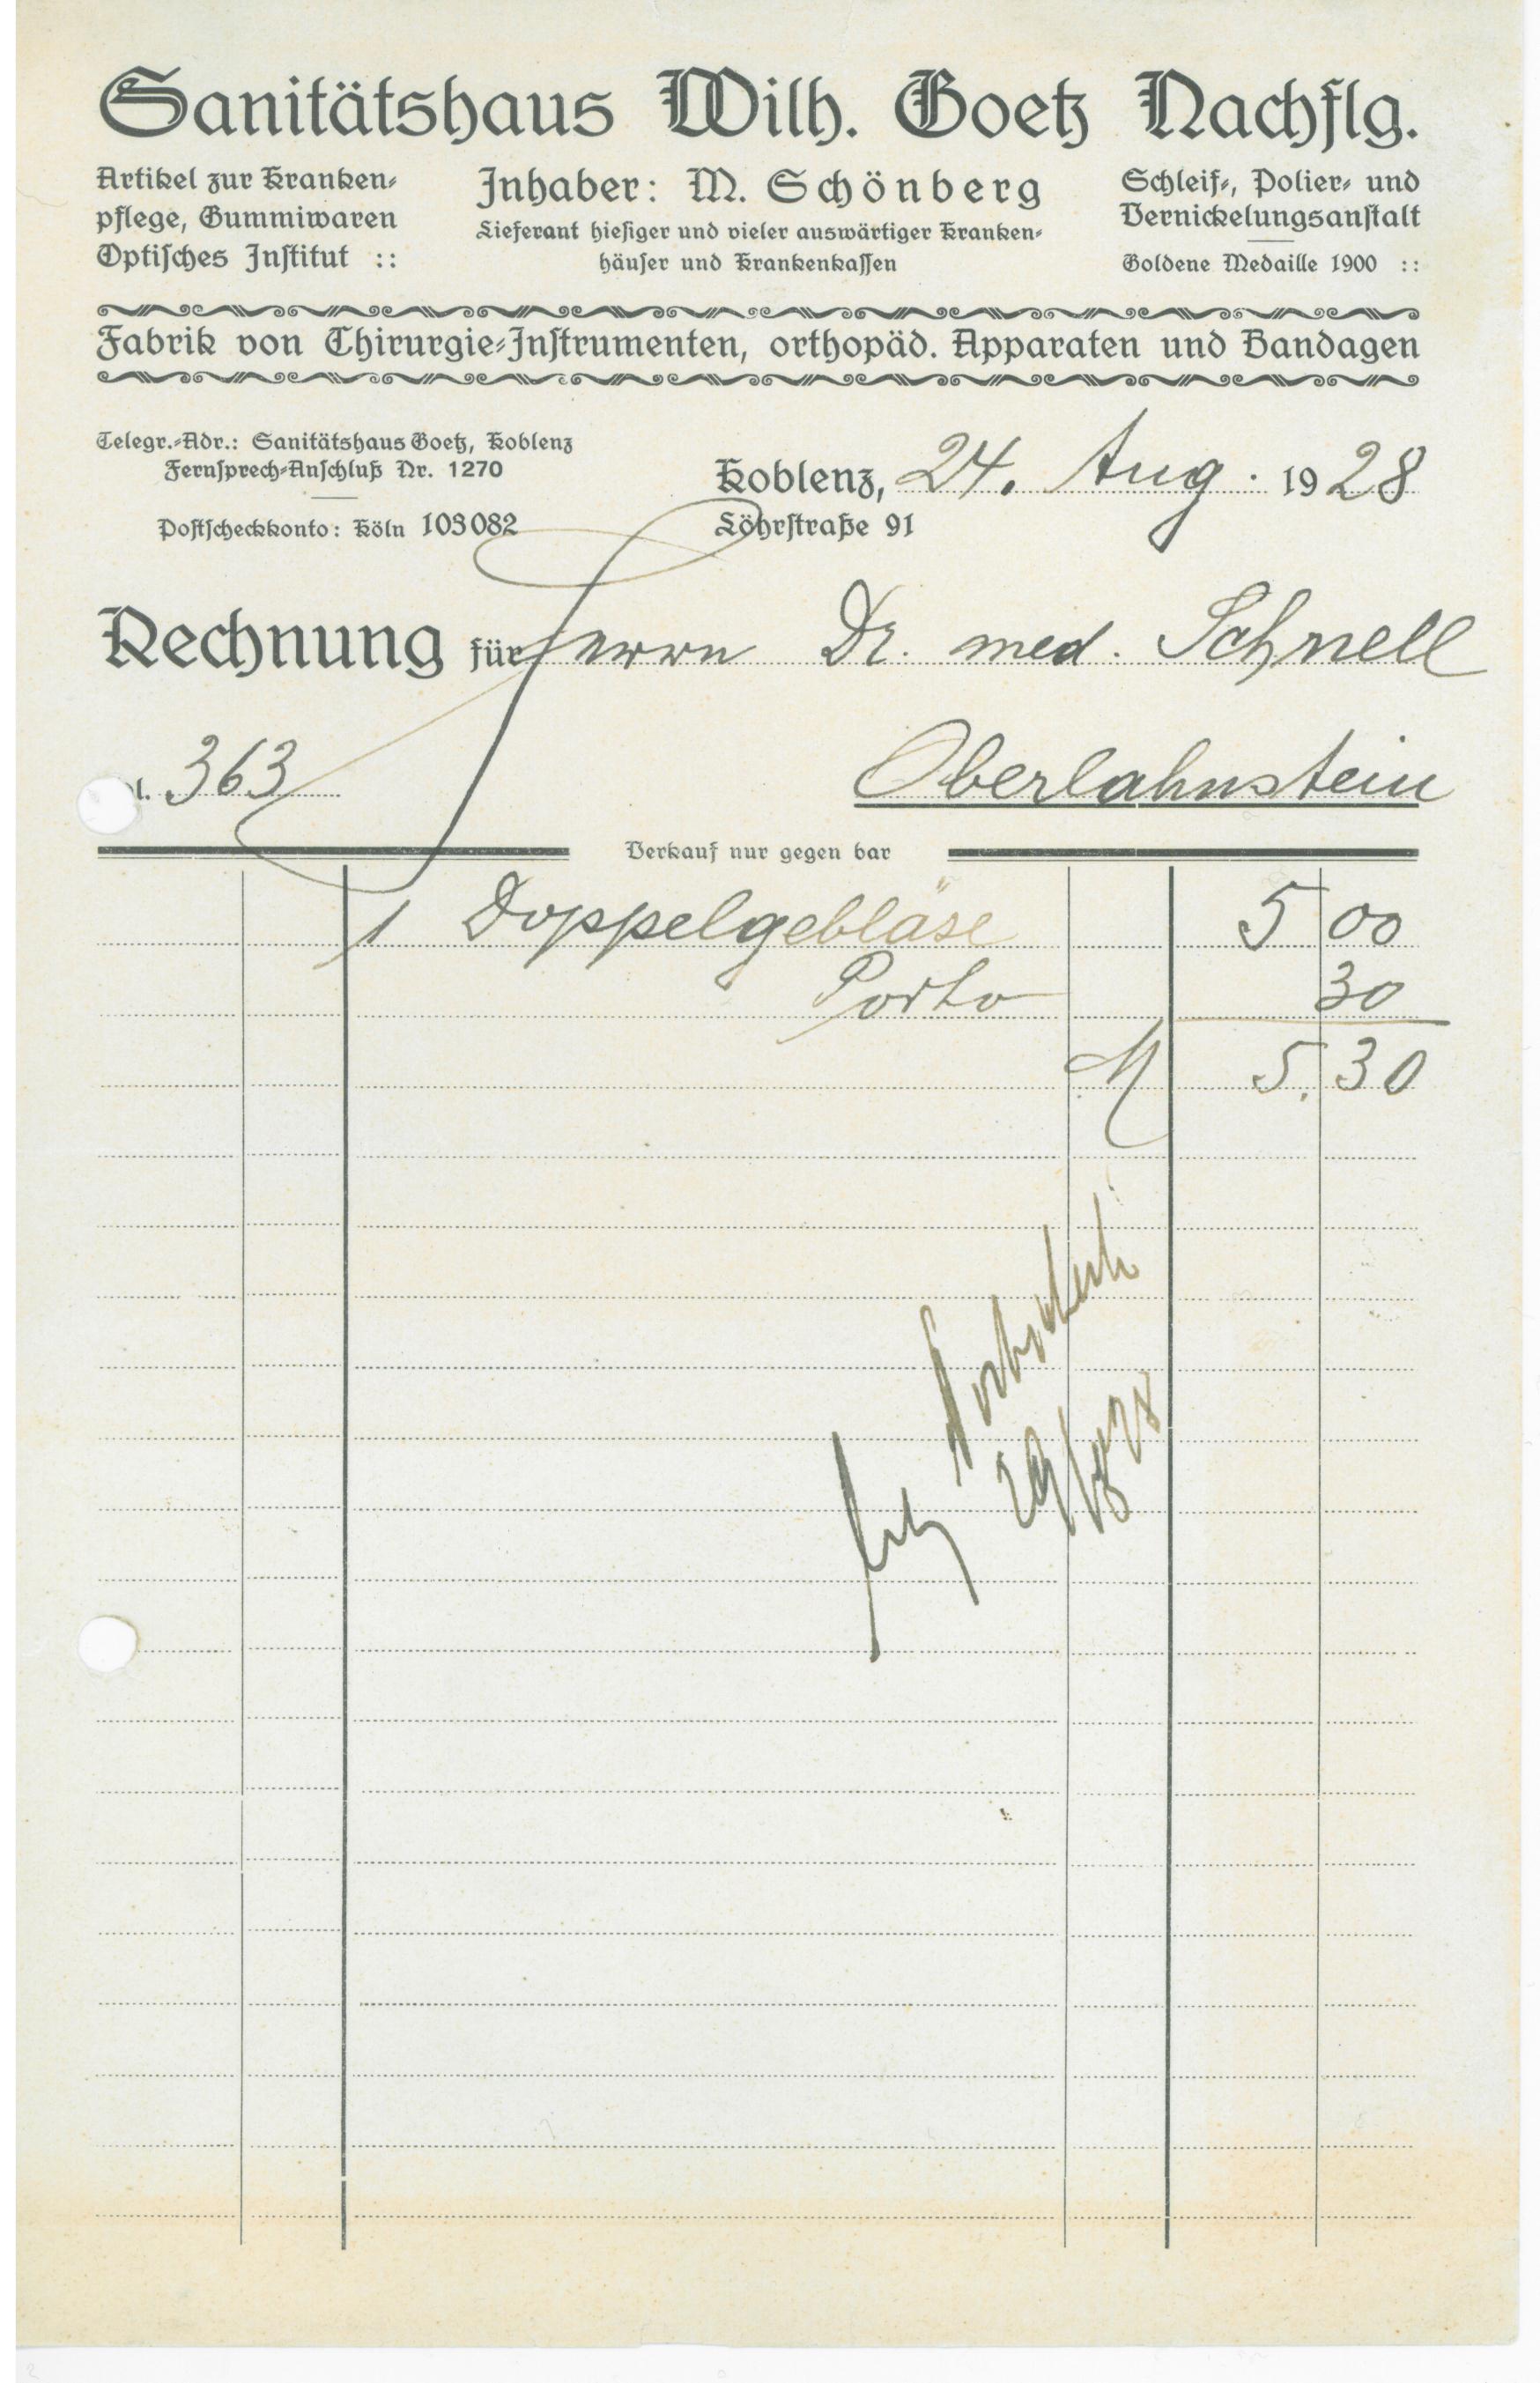 Sanitätshaus Wilh. Goetz Nachflg.
Artikel zur Kranken-
pflege, Gummiwaren
Optisches Institut ::
Inhaber: M. Schönberg
Lieferant hiesiger und vieler auswärtiger Kranken-
häuser und Krankenkassen
Schleif-, Polier- und
Vernickelungsanstalt
Goldene Medaille 1900 ::
Fabrik von Chirurgie-Instrumenten, orthopäd. Apparaten und Bandagen
Telegr.-Adr.: Sanitätshaus Goetz, Koblenz
Fernsprech-Anschluß Nr. 1270
Postscheckkonto: Köln 103082
Koblenz, 24. Aug. 1928
Löhrstraße 91
Rechnung für Herrn Dr. med. Schnell
363
Oberlahnstein
Verkauf nur gegen bar
1 Doppelgebläse 5 00
Porto 30
M 5.30
29/8 28